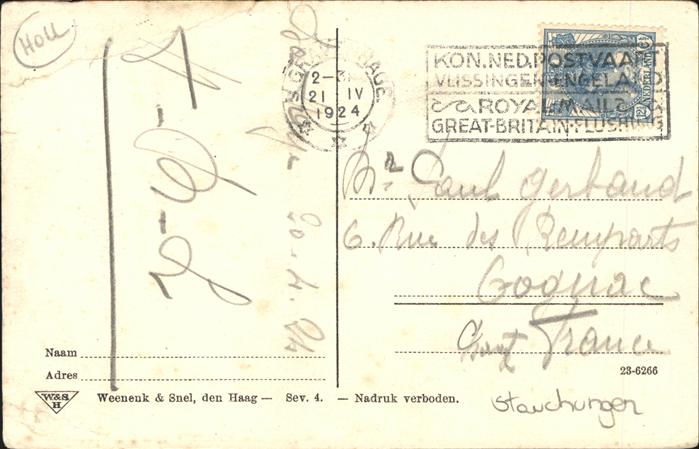 Holl
2-3
21 IV
1924
KON. NED. POSTVAART
VLISSINGEN-ENGELAND
ROYAL MAIL
GREAT-BRITAIN-FLUSHING
Mr Paul Gerbaud
6. Rue des Remparts
Cognac
France
20.4.24
Naam
Adres
23-6266
W&S
H
Weenenk & Snel, den Haag — Sev. 4. — Nadruk verboden.
Stauchungen